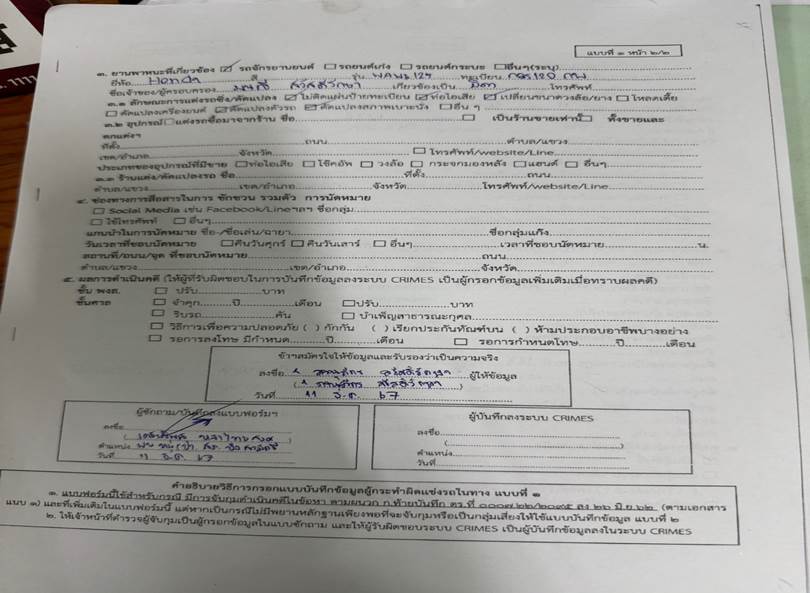 แบบที่ ๑ หน้า ๒/๒
๓. ยานพาหนะที่เกี่ยวข้อง ☑ รถจักรยานยนต์ ☐ รถยนต์เก๋ง ☐ รถยนต์กระบะ ☐ อื่นๆ(ระบุ)
ยี่ห้อ Honda สี รุ่น ทะเบียน
ชื่อเจ้าของ/ผู้ครอบครอง เกี่ยวข้องเป็น มิดา โทรศัพท์
๓.๑ ลักษณะการแต่งรถซิ่ง/ดัดแปลง ☑ ไม่ติดแผ่นป้ายทะเบียน ☑ ท่อไอเสีย ☑ เปลี่ยนขนาดวงล้อ/ยาง ☐ โหลดเตี้ย
☐ ดัดแปลงเครื่องยนต์ ☑ ดัดแปลงตัวรถ ☑ ดัดแปลงสภาพเบาะนั่ง ☐ อื่น ๆ
๓.๒ อุปกรณ์แต่งรถซื้อมาจากร้าน ชื่อ ☐ เป็นร้านขายเท่านั้น ☐ ทั้งขายและ
ตกแต่งฯ
ที่ตั้ง ถนน ตำบล/แขวง
เขต/อำเภอ จังหวัด ☐ โทรศัพท์/website/Line
ประเภทของอุปกรณ์ที่มีขาย ☐ ท่อไอเสีย ☐ โช๊คอัพ ☐ วงล้อ ☐ กระจกมองหลัง ☐ แฮนด์ ☐ อื่นๆ
๓.๓ ร้านแต่ง/ดัดแปลงรถ ชื่อ ที่ตั้ง ถนน
ตำบล/แขวง เขต/อำเภอ จังหวัด โทรศัพท์/website/Line
๔. ช่องทางการสื่อสารในการ ชักชวน รวมตัว การนัดหมาย
☐ Social Media เช่น Facebook/Line ฯลฯ ชื่อกลุ่ม
☐ ใช้โทรศัพท์ ☐ อื่นๆ
แกนนำในการนัดหมาย ชื่อ-/ชื่อเล่น/ฉายา ชื่อกลุ่มแก๊ง
วันเวลาที่ชอบนัดหมาย ☐ คืนวันศุกร์ ☐ คืนวันเสาร์ ☐ อื่นๆ เวลาที่ชอบนัดหมาย น.
สถานที่/ถนน/จุด ที่ชอบนัดหมาย ถนน
ตำบล/แขวง เขต/อำเภอ จังหวัด
๕. ผลการดำเนินคดี (ให้ผู้ที่รับผิดชอบในการบันทึกข้อมูลลงระบบ CRIMES เป็นผู้กรอกข้อมูลเพิ่มเติมเมื่อทราบผลคดี)
ชั้น พงส. ☐ ปรับ บาท
ชั้นศาล ☐ จำคุก ปี เดือน ☐ ปรับ บาท
☐ ริบรถ คัน ☐ บำเพ็ญสาธารณะกุศล
☐ วิธีการเพื่อความปลอดภัย ( ) กักกัน ( ) เรียกประกันทัณฑ์บน ( ) ห้ามประกอบอาชีพบางอย่าง
☐ รอการลงโทษ มีกำหนด ปี เดือน ☐ รอการกำหนดโทษ ปี เดือน
ข้าฯสมัครใจให้ข้อมูลและรับรองว่าเป็นความจริง
ลงชื่อ ผู้ให้ข้อมูล
วันที่ 11 ธ.ค. 67
ผู้ซักถาม/บันทึกลงแบบฟอร์มฯ
ลงชื่อ
ตำแหน่ง
วันที่ 11 ธ.ค. 67
ผู้บันทึกลงระบบ CRIMES
ลงชื่อ
( )
ตำแหน่ง
วันที่
คำอธิบายวิธีการกรอกแบบบันทึกข้อมูลผู้กระทำผิดแข่งรถในทาง แบบที่ ๑
๑. แบบฟอร์มนี้ใช้สำหรับกรณี มีการจับกุมดำเนินคดีในข้อหา ตามผนวก ก.ท้ายบันทึก ตร.ที่ ๐๐๐๗.๒๒/๒๐๙๕ ลง ๒๖ มิ.ย.๖๒ (ตามเอกสาร
แนบ ๑) และที่เพิ่มเติมในแบบฟอร์มนี้ แต่หากเป็นกรณีไม่มีพยานหลักฐานเพียงพอที่จะจับกุมหรือเป็นกลุ่มเสี่ยงให้ใช้แบบบันทึกข้อมูล แบบที่ ๒
๒. ให้เจ้าหน้าที่ตำรวจผู้จับกุมเป็นผู้กรอกข้อมูลในแบบซักถาม และให้ผู้รับผิดชอบระบบ CRIMES เป็นผู้บันทึกข้อมูลลงในระบบ CRIMES